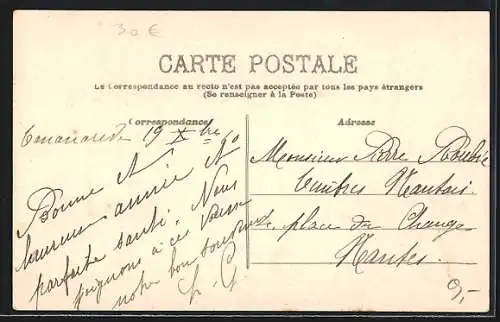 30 €
CARTE POSTALE
La Correspondance au recto n'est pas acceptée par tous les pays étrangers
(Se renseigner à la Poste)
Correspondance
Adresse
19 Xbre
Bonne
heureuse année
parfaite santé. Nous
joignons à ces vœux
notre bon souvenir
Monsieur
Timbres Nantais
place du Change
Nantes